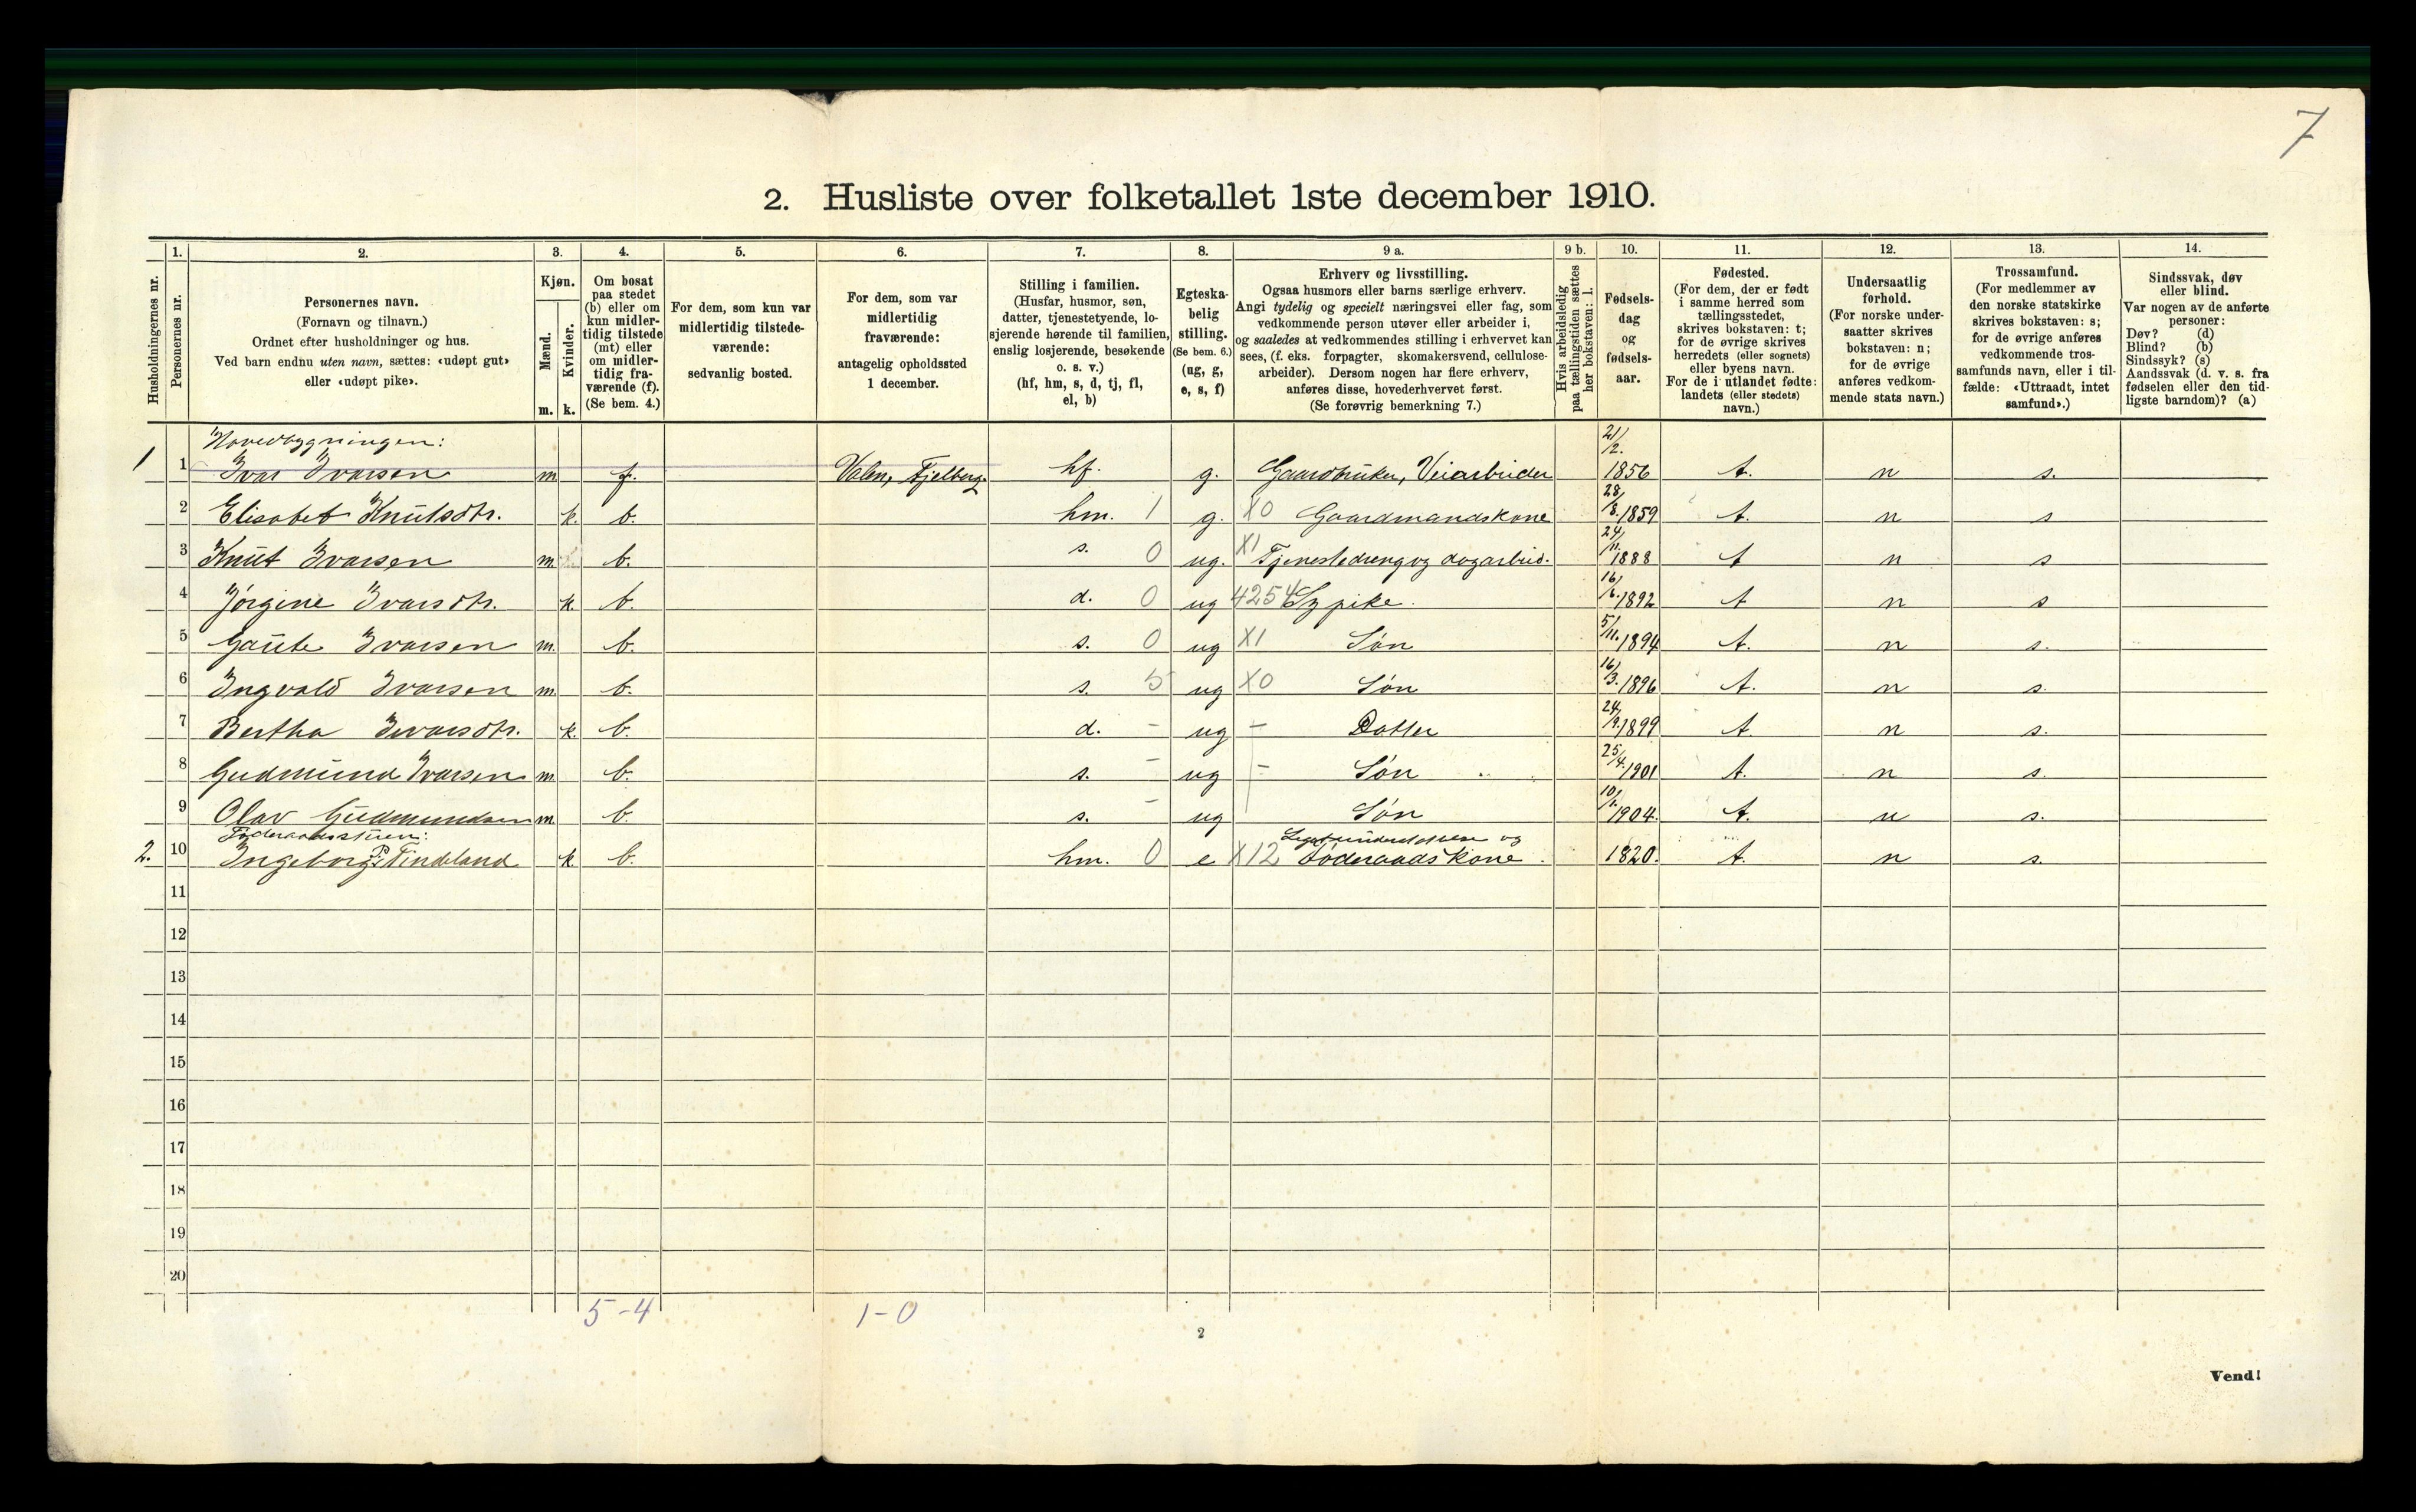 7
2. Husliste over folketallet 1ste december 1910.
1. 2. 3. 4. 5. 6. 7. 8. 9 a. 9 b. 10. 11. 12. 13. 14.
Husholdningernes nr.
Personernes nr.
Personernes navn.
(Fornavn og tilnavn.)
Ordnet efter husholdninger og hus.
Ved barn endnu uten navn, sættes: «udøpt gut»
eller «udøpt pike».
Kjøn.
Mænd.
Kvinder.
m. k.
Om bosat
paa stedet
(b) eller om
kun midler-
tidig tilstede
(mt) eller
om midler-
tidig fra-
værende (f).
(Se bem. 4.)
For dem, som kun var
midlertidig tilstede-
værende:
sedvanlig bosted.
For dem, som var
midlertidig
fraværende:
antagelig opholdssted
1 december.
Stilling i familien.
(Husfar, husmor, søn,
datter, tjenestetyende, lo-
sjerende hørende til familien,
enslig losjerende, besøkende
o. s. v.)
(hf, hm, s, d, tj, fl,
el, b)
Egteska-
belig
stilling.
(Se bem. 6.)
(ug, g,
e, s, f)
Erhverv og livsstilling.
Ogsaa husmors eller barns særlige erhverv.
Angi tydelig og specielt næringsvei eller fag, som
vedkommende person utøver eller arbeider i,
og saaledes at vedkommendes stilling i erhvervet kan
sees, (f. eks. forpagter, skomakersvend, cellulose-
arbeider). Dersom nogen har flere erhverv,
anføres disse, hovederhvervet først.
(Se forøvrig bemerkning 7.)
Hvis arbeidsledig
paa tællingstiden sættes
her bokstaven: l.
Fødsels-
dag
og
fødsels-
aar.
Fødested.
(For dem, der er født
i samme herred som
tællingsstedet,
skrives bokstaven: t;
for de øvrige skrives
herredets (eller sognets)
eller byens navn.
For de i utlandet fødte:
landets (eller stedets)
navn.)
Undersaatlig
forhold.
(For norske under-
saatter skrives
bokstaven: n;
for de øvrige
anføres vedkom-
mende stats navn.)
Trossamfund.
(For medlemmer av
den norske statskirke
skrives bokstaven: s;
for de øvrige anføres
vedkommende tros-
samfunds navn, eller i til-
fælde: «Uttraadt, intet
samfund».)
Sindssvak, døv
eller blind.
Var nogen av de anførte
personer:
Døv? (d)
Blind? (b)
Sindssyk? (s)
Aandssvak (d. v. s. fra
fødselen eller den tid-
ligste barndom)? (a)
Hovedbygningen:
1 1 Ivar Ivarsen m. f. Valen, Fjelberg. hf. g. Gaardbruker, Veiarbeider 21/2. 1856 t. n s.
2 Elisabet Knutsdtr. k. b. hm. 1 g. X0 Gaardmandskone 28/8. 1859 t. n s
3 Knut Ivarsen m. b. s. 0 ug. X1 Tjenestedreng og dagarbeid. 24/11. 1888 t n s
4 Jørgine Ivarsdtr. k. b. d. 0 ug 4254 Sypike. 16/6. 1892 t n s
5 Gaute Ivarsen m. b. s. 0 ug X1 Søn 5/11. 1894 t. n s.
6 Ingvald Ivarsen m. b. s. 5 ug X0 Søn 16/3. 1896 t. n s.
7 Bertha Ivarsdtr. k. b. d. - ug - Datter 24/9. 1899 t. n s.
8 Gudmund Ivarsen m. b. s. - ug - Søn 25/4. 1901 t. n s.
9 Olav Gudmundsen m. b. s. - ug Søn 10/1. 1904. t. n s.
Føderaadsstuen:
2. 10 Ingeborg P. Tindeland k. b. hm. 0 e X12 Legdsunderstøttelse og Føderaadskone. 1820. t. n s.
11
12
13
14
15
16
17
18
19
20
5-4 1-0
2
Vend!